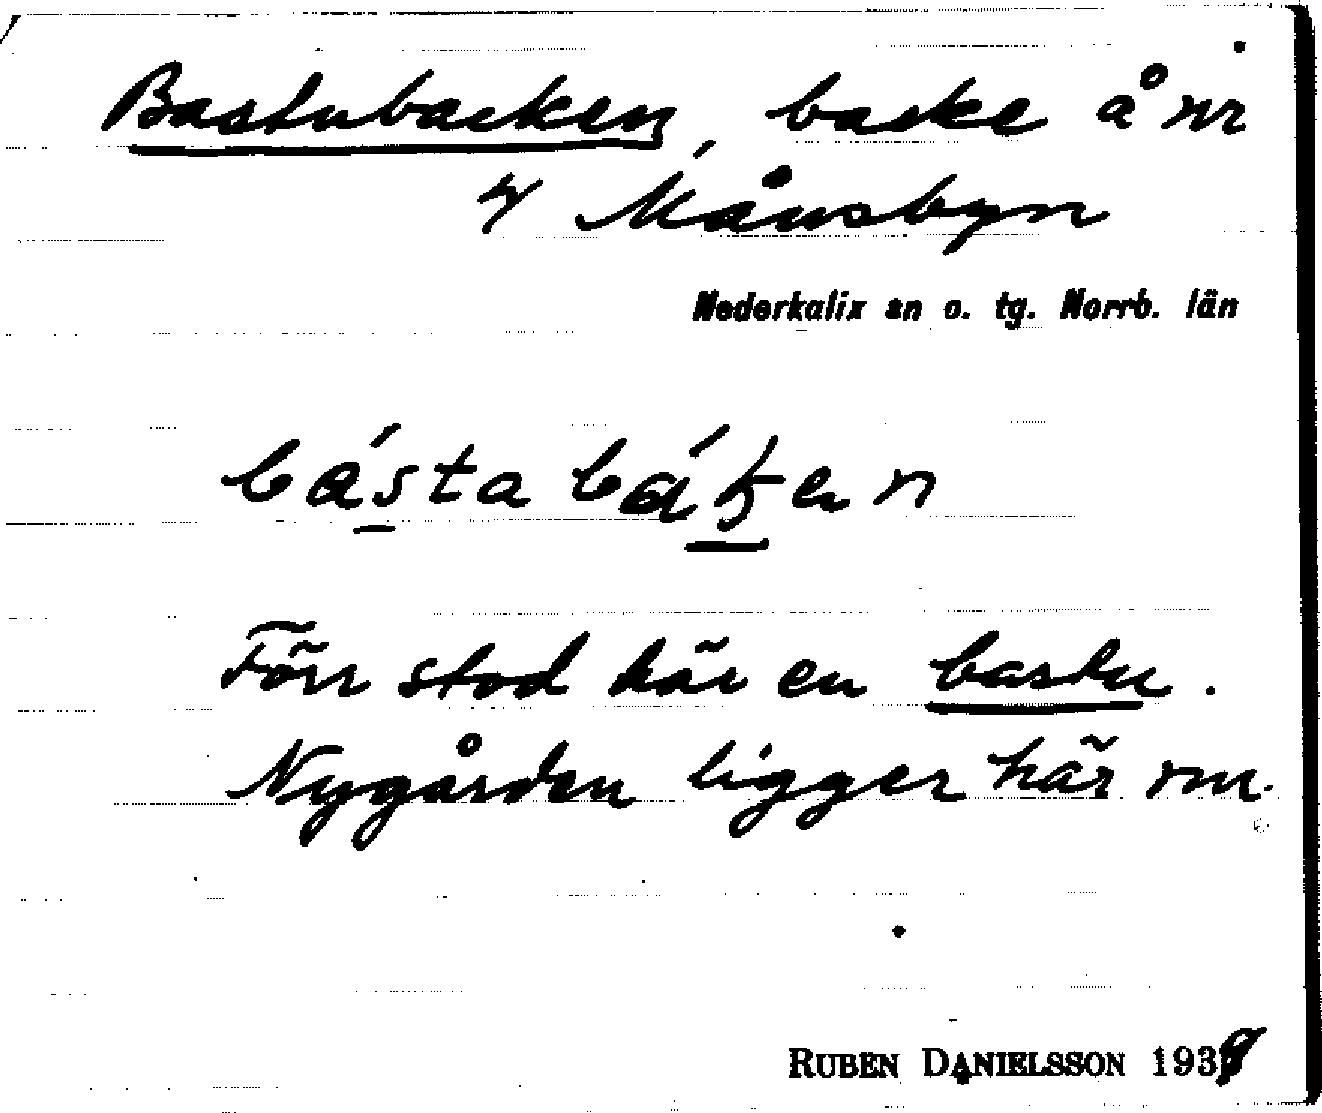 Bastubacken, backe å nr
4 Månsbyn
Nederkalix sn o. tg. Norrb. län
bástabáken
Förr stod här en bastu.
Nygården ligger här om.
RUBEN DANIELSSON 1939